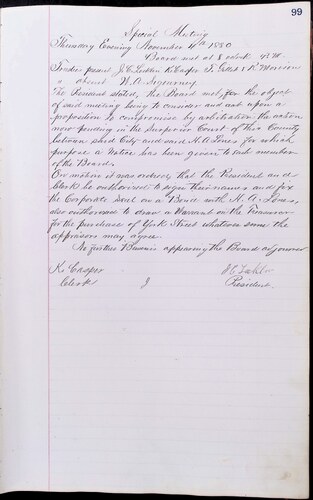 99
Special Meeting
Thursday Evening November 4th 1880
Board met at 8 oclock P.M.
present J. C. K. Casper F. R. Morrison
absent W. A.
The President stated, the Board met, for the object
of said meeting being to consider and act upon a
proposition to compromise by arbitration the action
now pending in the Superior Court of this County
between said City and said H. A. Jones for which
purpose a Notice has been given to each member
of the Board.
On motion it was ordered that the President and
Clerk be authorized to sign their names and fix
the Corporate seal on a Bond with H. A. Jones,
also authorized to draw a Warrant on the Treasurer
for the purchase of York Street whatever sum the
appraisers may agree.
No further Business appearing the Board adjourned
K. Casper
Clerk
J. C.
President